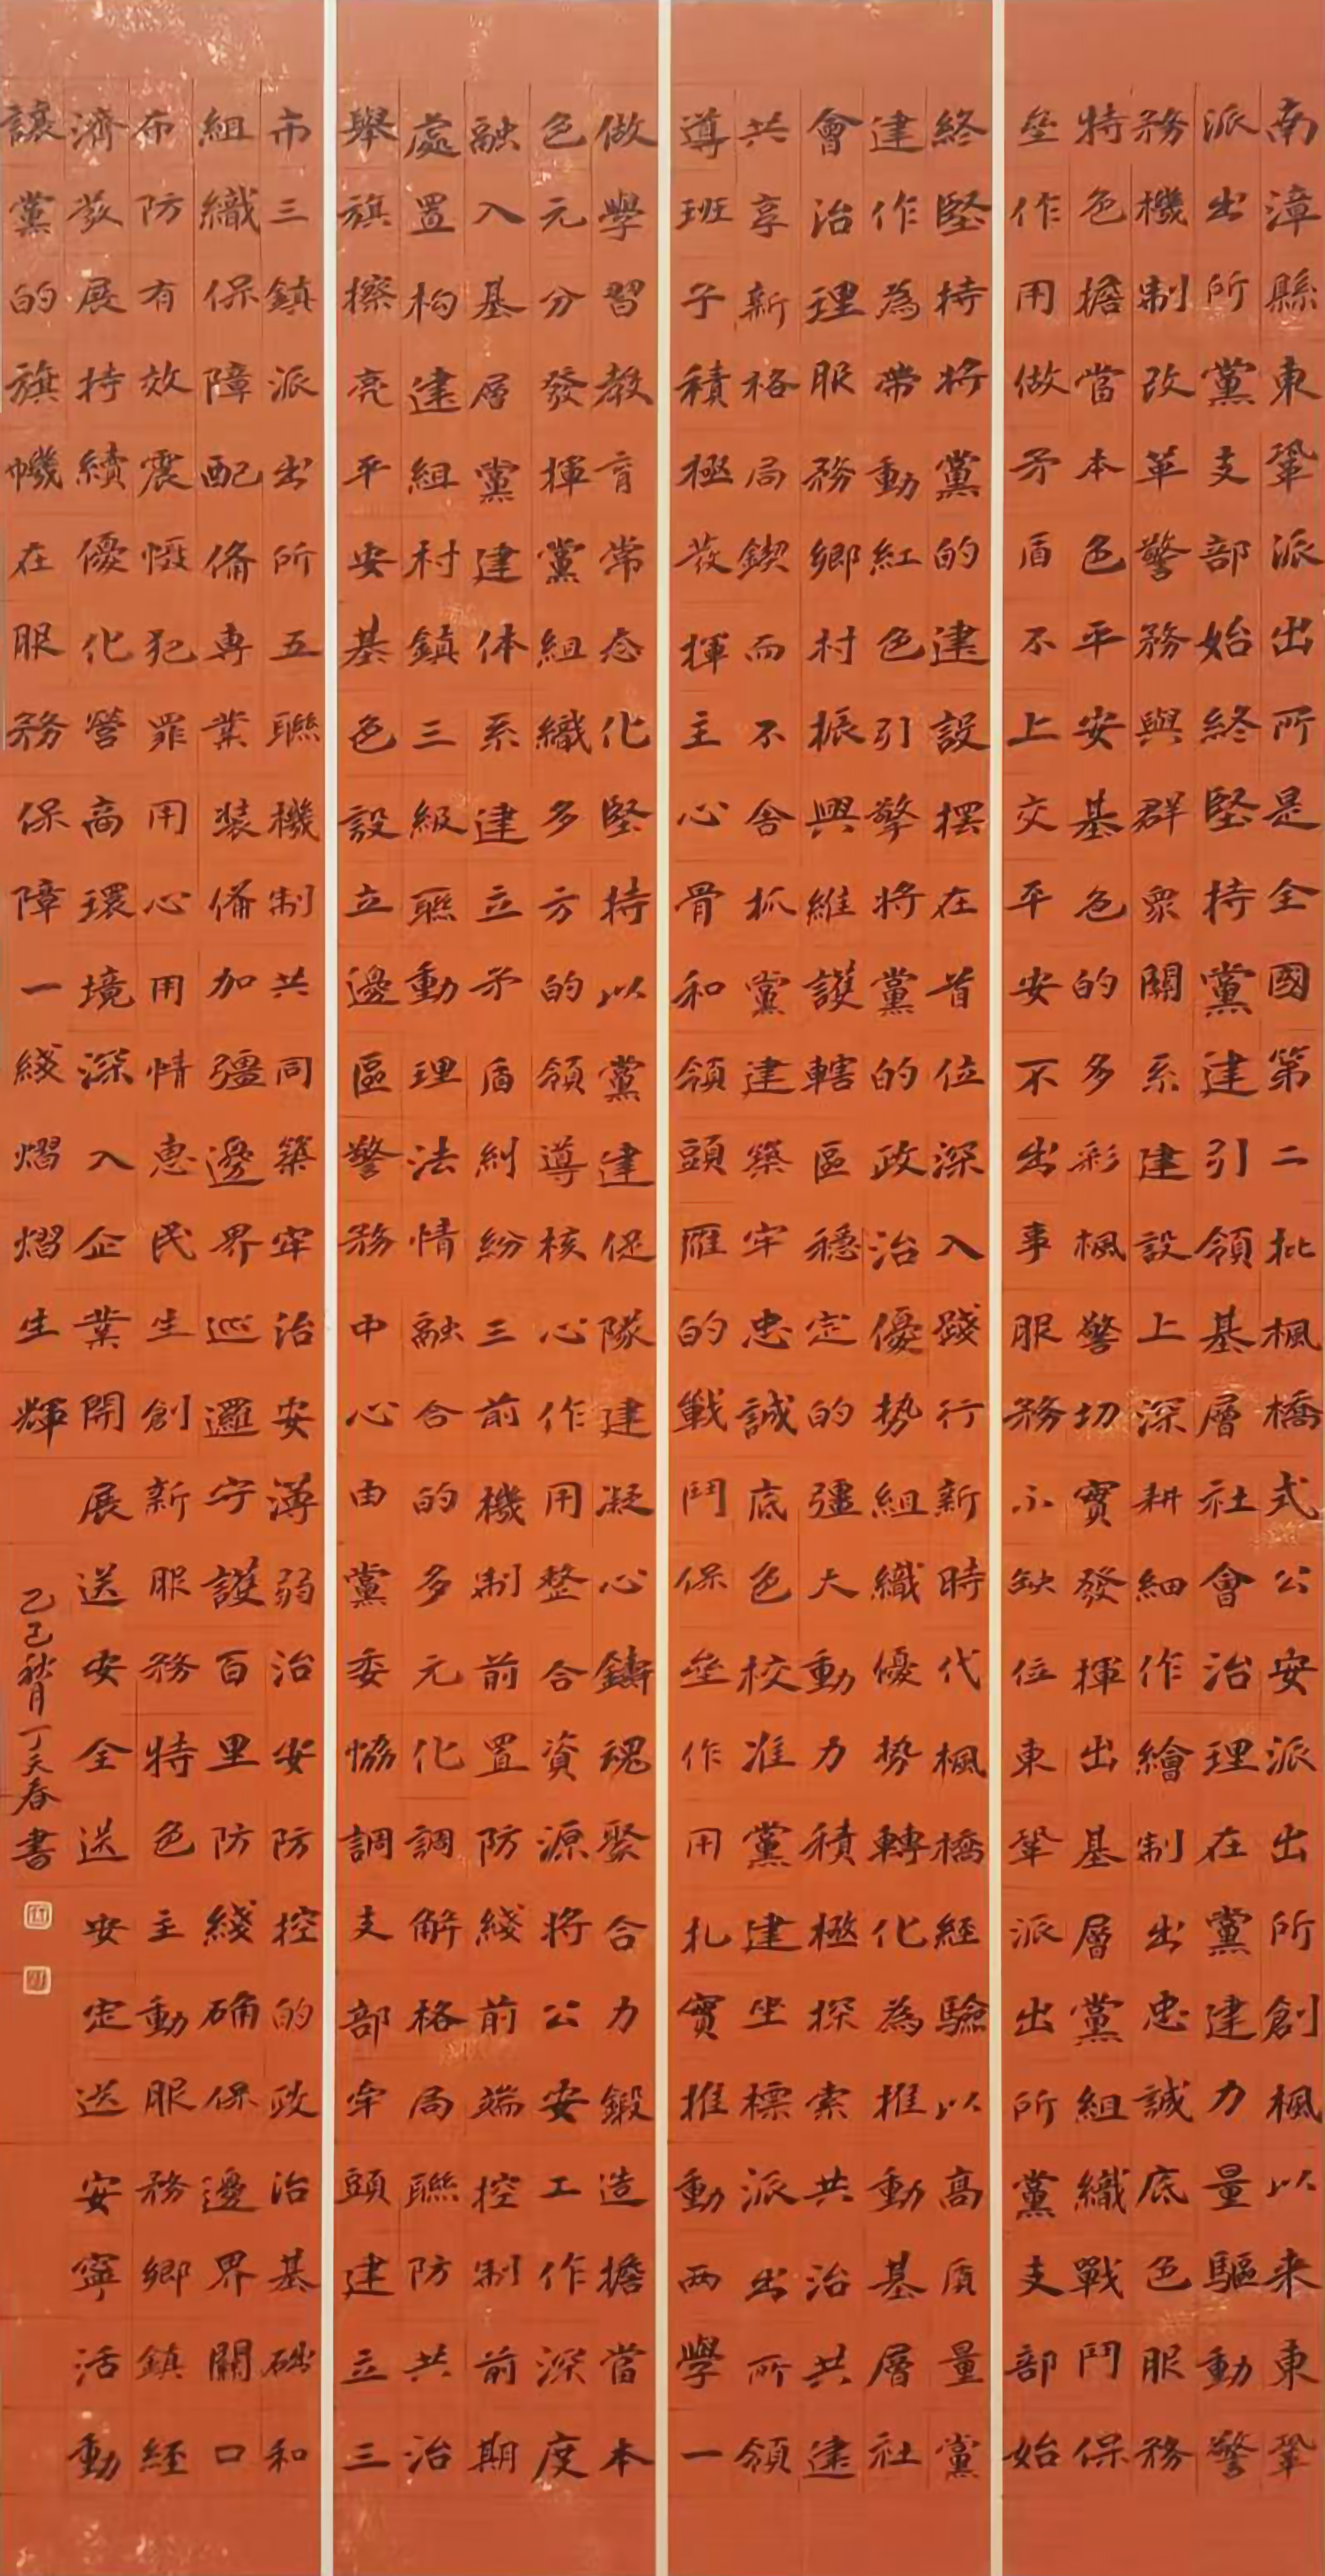 南漳縣東鞏派出所是全國第二批楓橋式公安派出所創楓以来東鞏
派出所黨支部始終堅持黨建引領基層社會治理在黨建力量驅動警
務機制改革警務與群衆關系建設上深耕細作繪制出忠誠底色服務
特色擔當本色平安基色的多彩楓警切實發揮出基層黨組織戰鬥保
垒作用做矛盾不上交平安不出事服務不缺位東鞏派出所黨支部始
終堅持將黨的建設摆在首位深入践行新時代楓橋經驗以高質量黨
建作為帶動紅色引擎將黨的政治優势組織優势轉化為推動基層社
會治理服務鄉村振興維護轄區穩定的彊大動力積極探索共治共建
共享新格局鍥而不舍抓黨建築牢忠誠底色校准黨建坐標派出所領
導班子積極发揮主心骨和領頭雁的戰鬥保垒作用扎實推動两學一
做學習教育常态化堅持以黨建促隊建凝心鑄魂聚合力鍛造擔當本
色元分發揮黨組織多方的領導核心作用整合資源將公安工作深度
融入基層黨建体系建立矛盾糾紛三前機制前置防綫前端控制前期
處置构建組村鎮三級聯動理法情融合的多元化調解格局聯防共治
舉旗擦亮平安基色設立邊區警務中心由黨委協調支部牵頭建立三
市三鎮派出所五聯機制共同築牢治安薄弱治安防控的政治基础和
組織保障配備專業装備加彊邊界巡邏守護百里防綫确保邊界關口
布防有效震慑犯罪用心用情惠民生創新服務特色主動服務鄉鎮経
濟发展持續優化營商環境深入企業開展送安全送安定送安寧活動
讓黨的旗幟在服務保障一綫熠熠生輝
乙巳秋月丁天春書